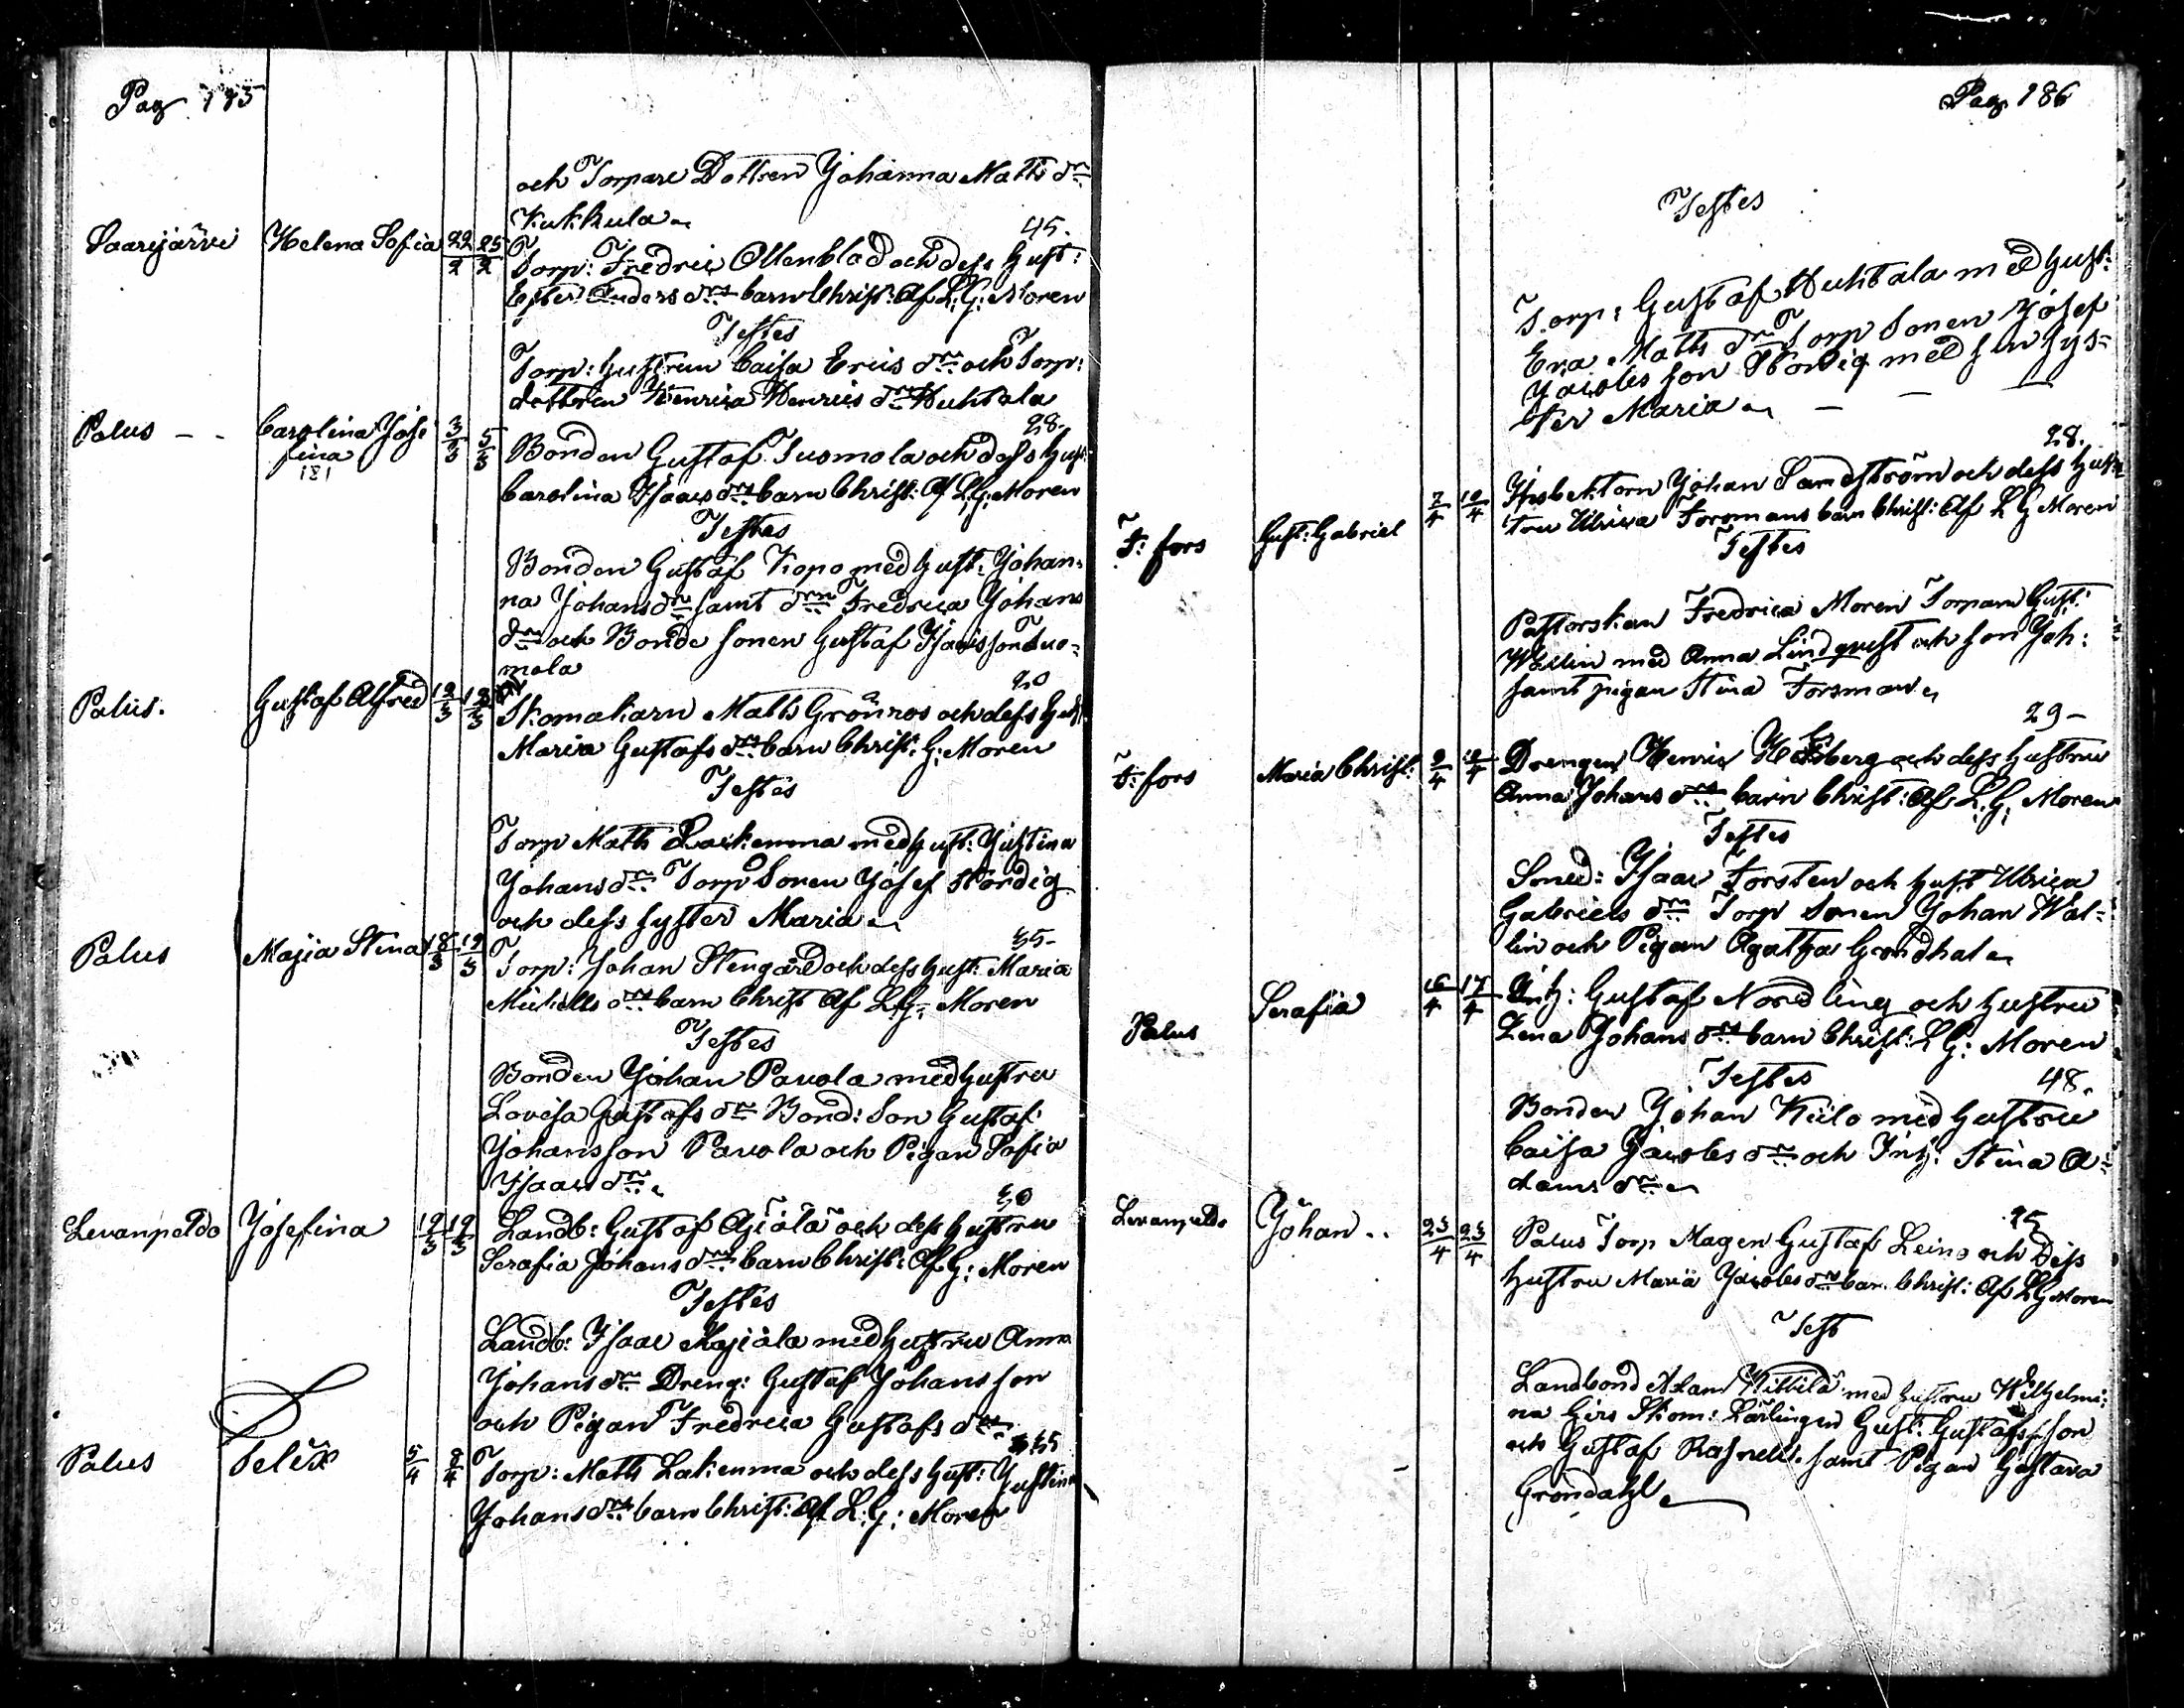 Pag 185
och Torpare Dottren Johanna Matts drn
Kukkula
45.
Saarijärvi Helena Sofia 22/2 25/2 Torp: Fredric Ollenblad och dess hust:
Ester Anders drs barn Christ: Af L.G: Moren
Testes
Torp: hustrun Caisa Erics drn och Torp:
dottren Henrica Henrics drn Huhtala
28.
Palus - - Carolina Jose 3/3 5/3 Bonden Gustaf Tuomola och dess hust:
fina
181
Carolina Isaacs drs barn Christ: Af L.G: Moren
Testes
Bonden Gustaf Kopo med hust: Johan-
na Johans drn samt drn Fredrica Johans
drn och Bonde sonen Gustaf Isacsson Tuo-
mola
20
Palus. Gustaf Alfred 12/3 /3 Skomakarn Matts Grönros och dess hust
Maria Gustafs drs barn Christ: G: Moren
Testes
Torp Matts Lakemma med hust: Justina
Johans drn Torp Sonen Josef Nordig
och dess syster Maria
35-
Palus Majia Stina 18/3 19/3 Torp: Johan Stengård och dess hust: Maria
Michells drs barn Christ Af L.G: Moren
Testes
Bonden Johan Pavola med hustru
Lovisa Gustafs drn Bond: Son Gustaf
Johansson Pavola och Pigan Sofia
Isaacs drn
30
Levanpeldo Josefina 19/3 19/3 Landb: Gustaf Äjälä och dess hustru
Serafia Johans drs barn Christ: Af G: Moren
Testes
Landb: Isaac Majiala med hustru Anna
Johans drn Dreng: Gustaf Johansson
och Pigan Fredrica Gustafs drn
35
Palus Felix 5/4 /4 Torp: Matts Lakemma och dess hust: Justina
Johans drs barn Christ: Af L.G: Moren
Pag. 186
Testes
Torp: Gustaf Huhtala med hust:
Eva Matts drn Torp Sonen Josef
Jacobsson Nordig med sin sys-
ter Maria - - -
28.
F: fors Gust: Gabriel 7/4 10/4 Inspektorn Johan Sandström och dess hus-
tru Ulrica Forsmans barn Christ: Af L G Moren
Testes
Pastorskan Fredrica Moren Torparn Gust:
Wallin med Anna Lindqvist och son Joh:
samt pigan Stina Forsman
29-
F: fors Maria Christ: 9/4 12/4 Drengen Henric Hedberg och dess hustru
Anna Johans drs barn Christ: Af L.G: Moren
Testes
Smed: Isaac Forsten och hust Ulrica
Gabriels drn Torp Sonen Johan Wal-
lin och Pigan Agatha Grondhal
Palus Serafia 16/4 17/4 Inh: Gustaf Nordling och hustru
Lena Johans drs barn Christ: L G: Moren
Testes 48.
Bonden Johan Kiilo med hustru
Caisa Jacobs drn och Inh: Stina A-
dams drn
25
Levanpeldo Johan .. 23/4 23/4 Palus Torp Magen Gustaf Leino och dess
hustru Maria Jacobs drs bar. Christ: Af L G Moren
Test
Landbond Adam Wittilä med hustru Wilhelmi-
na Girs Skom: Lärlingen Gust: Gustafsson
och Gustaf Rasnell samt Pigan Gustava
Gröndahl